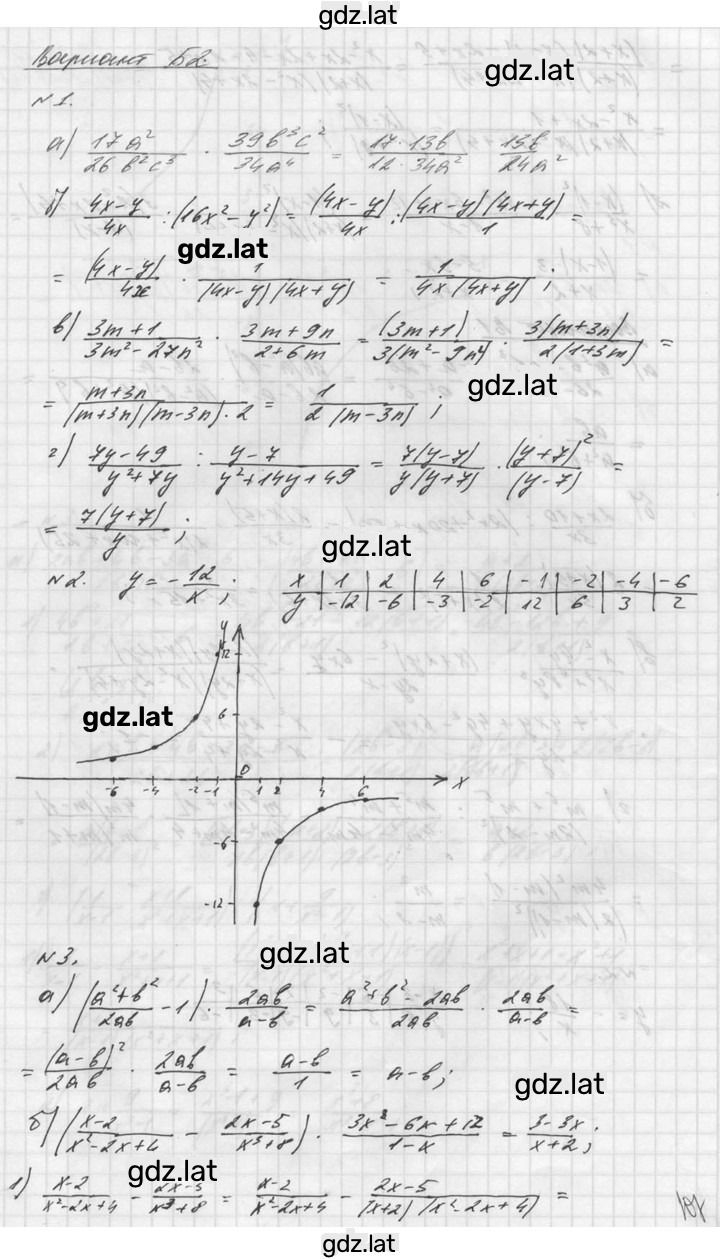 gdz.lat
Вариант Б2.
gdz.lat
№1.
а) 17a²/26b²c³ · 39b³c²/34a⁴ = 17·13b/12·34a² 13b/24a²
б) 4x-y/4x : (16x²-y²) = (4x-y)/4x : (4x-y)(4x+y)/1 =
gdz.lat
= (4x-y)/4x · 1/(4x-y)(4x+y) = 1/4x(4x+y) ;
в) 3m+1/3m²-27n² · 3m+9n/2+6m = (3m+1)/3(m²-9n²) · 3(m+3n)/2(1+3m) =
gdz.lat
= m+3n/(m+3n)(m-3n)·2 = 1/2(m-3n) ;
г) 7y-49/y²+7y : y-7/y²+14y+49 = 7(y-7)/y(y+7) · (y+7)²/(y-7) =
= 7(y+7)/y ;
gdz.lat
№2. y = -12/x ;
x | 1 | 2 | 4 | 6 | -1 | -2 | -4 | -6
y | -12 | -6 | -3 | -2 | 12 | 6 | 3 | 2
y
12
gdz.lat
6
0
-6 -4 -2 -1 1 2 4 6 x
-6
-12
№3.
gdz.lat
а) (a²+b²/2ab - 1) · 2ab/a-b = a²+b²-2ab/2ab · 2ab/a-b =
= (a-b)²/2ab · 2ab/a-b = a-b/1 = a-b ;
gdz.lat
б) (x-2/x²-2x+4 - 2x-5/x³+8) · 3x²-6x+12/1-x = 3-3x/x+2 ;
1) x-2/x²-2x+4 - 2x-5/x³+8 = x-2/x²-2x+4 - 2x-5/(x+2)(x²-2x+4) =
gdz.lat
gdz.lat